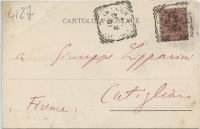 4127
CARTOLINA POSTALE
a Giuseppe Lipparini
Firenze
Cutigliano